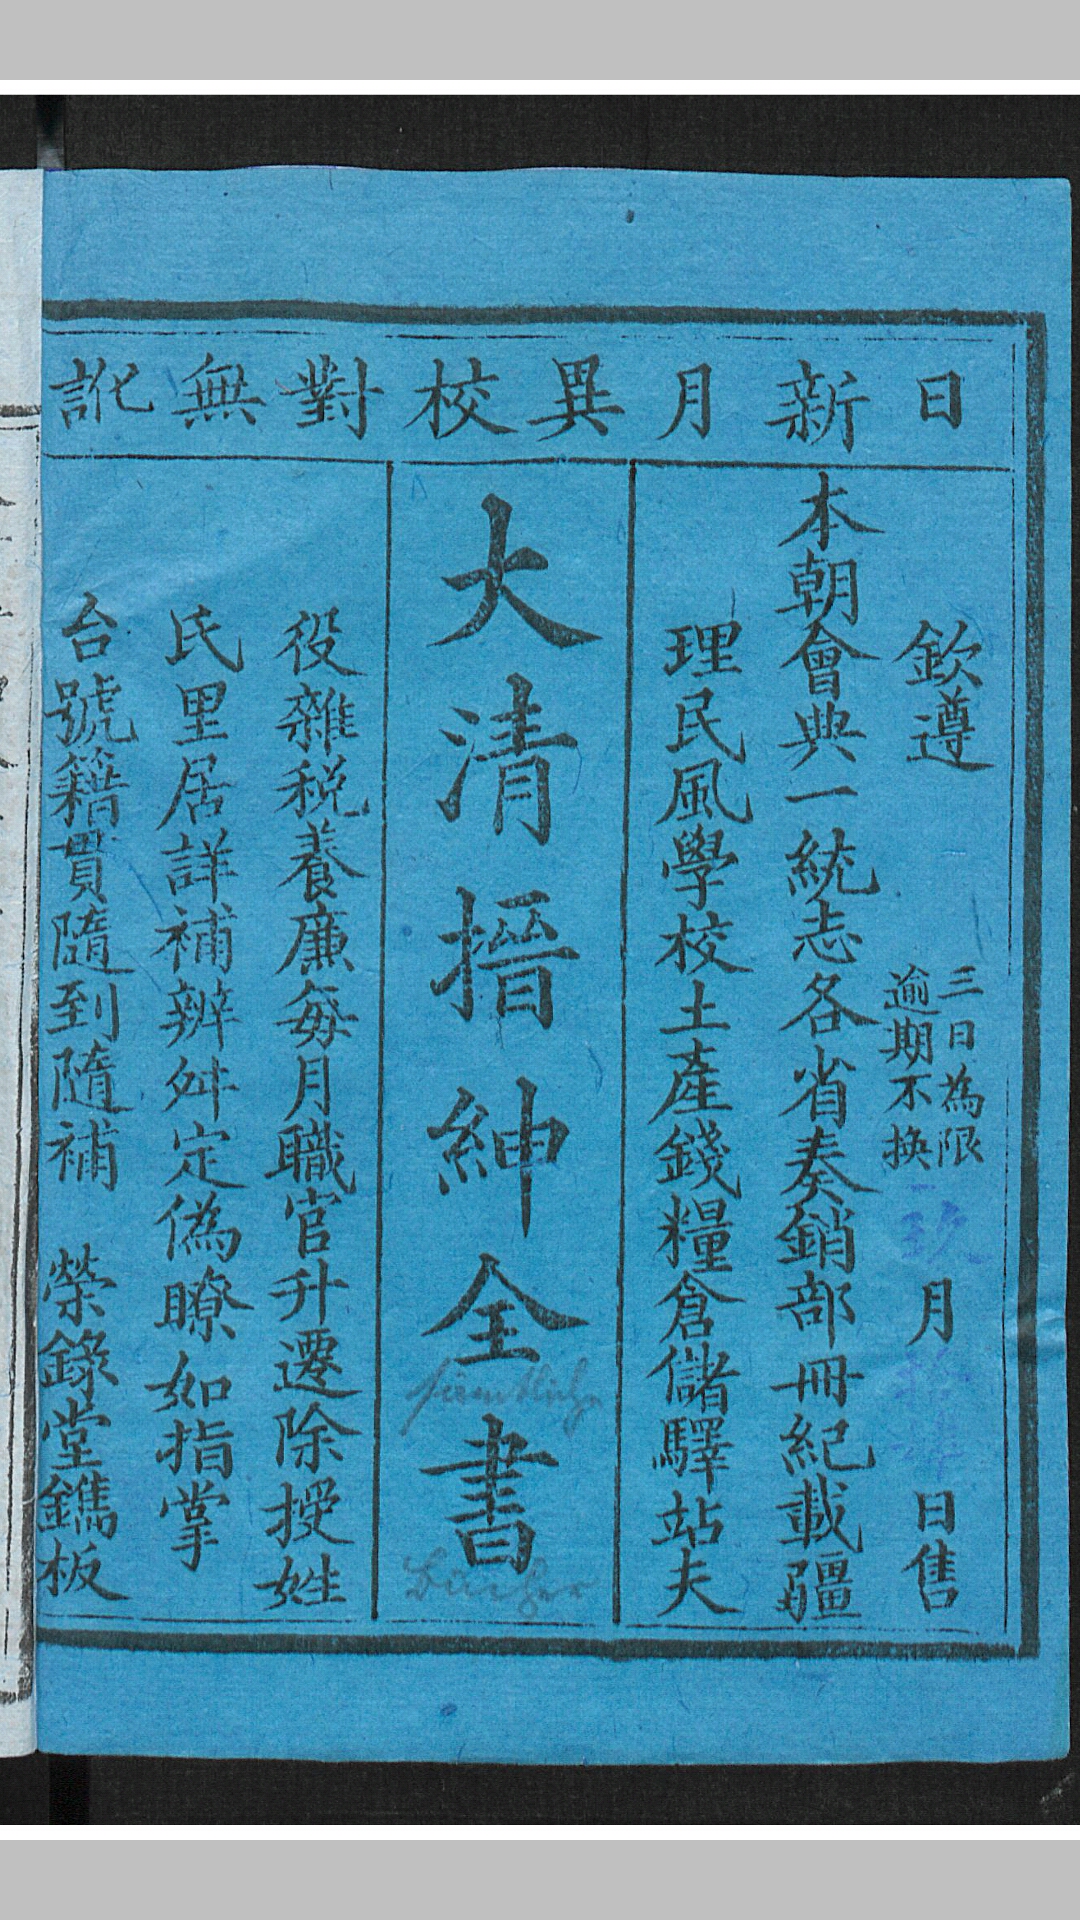 日新月異校對無訛
欽遵
三日為限
逾期不換
玖月拾肆日售
本朝會典一統志各省奏銷部冊紀載疆
理民風學校土產錢糧倉儲驛站夫
大清搢紳全書
役雜税養廉每月職官升遷除授姓
氏里居詳補辨舛定偽瞭如指掌
台號籍貫隨到隨補 榮錄堂鐫板
Bücher